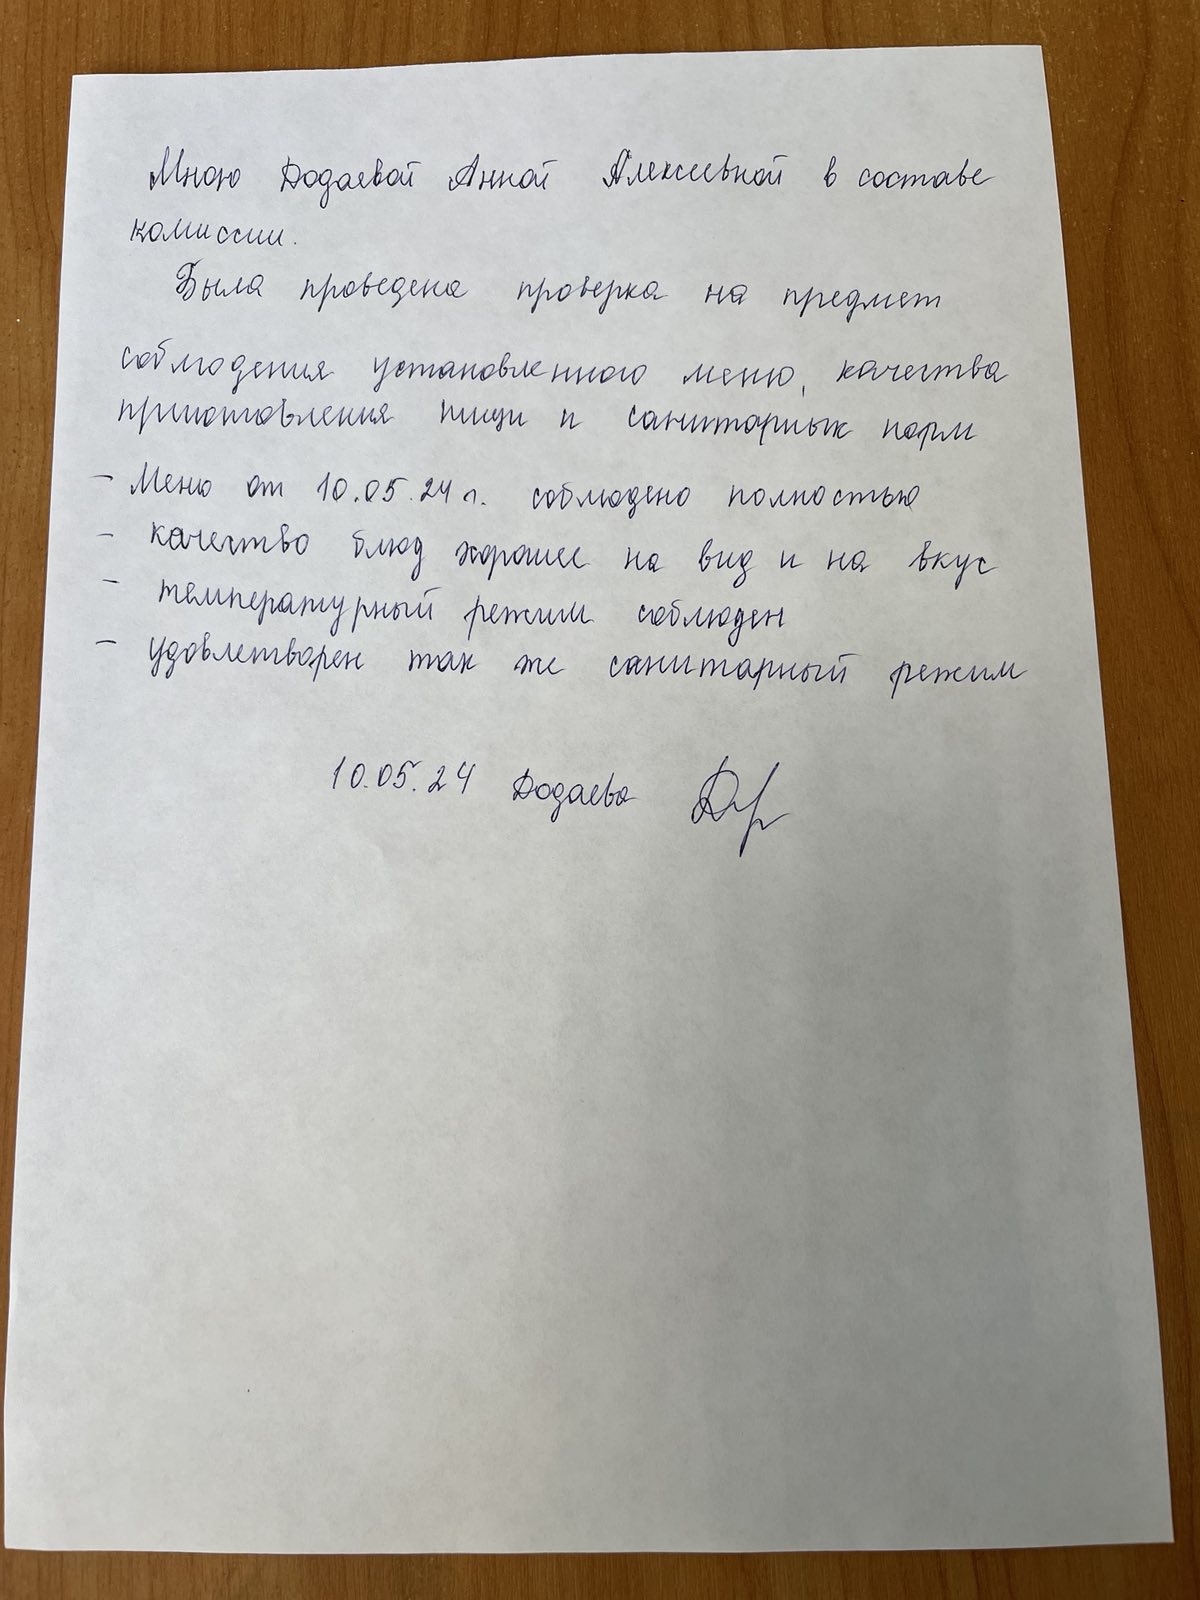 Мною Додаевой Анной Алексеевной в составе
комиссии.
Была проведена проверка на предмет
соблюдения установленного меню, качества
приготовления пищи и санитарных норм
- Меню от 10.05.24 г. соблюдено полностью
- качество блюд хорошее на вид и на вкус
- температурный режим соблюден
- удовлетворен так же санитарный режим
10.05.24 Додаева